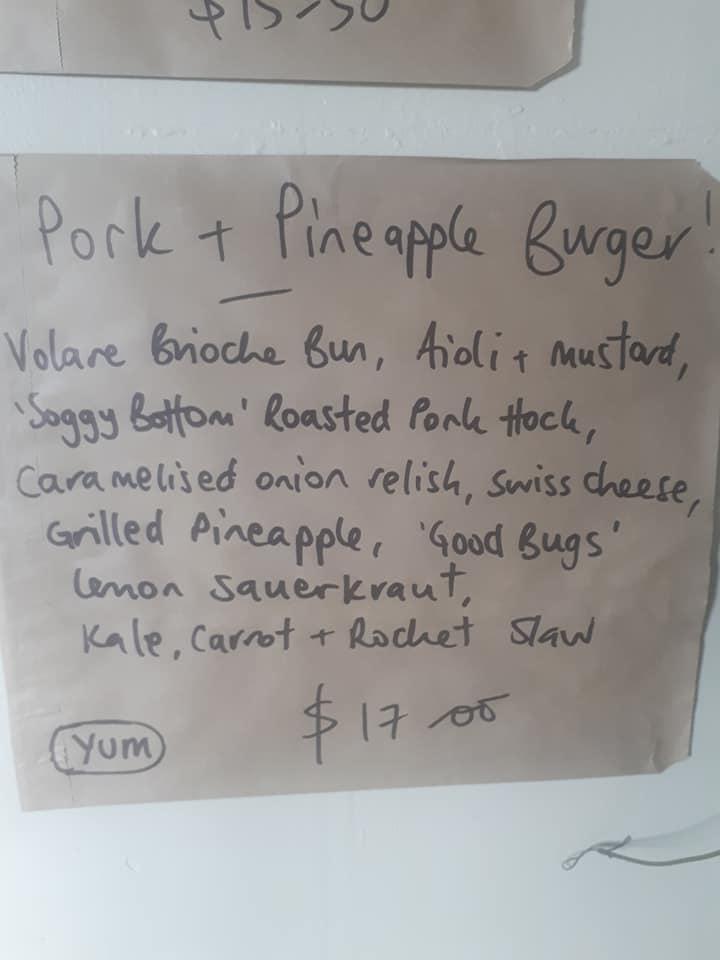 $15-50
Pork + Pineapple Burger!
Volare Brioche Bun, Aioli + mustard,
'Soggy Bottom' Roasted Pork Hock,
Caramelised onion relish, swiss cheese,
Grilled Pineapple, 'Good Bugs'
lemon sauerkraut,
Kale, Carrot + Rocket Slaw
$17-00
YUM